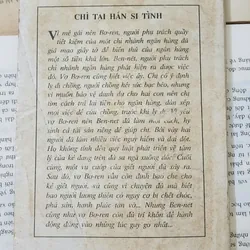 CHỈ TẠI HÁM SI TÌNH
Vì mê gái nên Bơ-ren, người phụ trách quầy
tiết kiệm của một chi nhánh ngân hàng đã
giả mạo giấy tờ để biển thủ của ngân hàng
một số tiền khá lớn. Ben-nét, người phụ trách
chi nhánh ngân hàng phát hiện ra điều này.
vợ Bơ-ren cũng biết việc đó. Chị có ý định
ly dị chồng, người chồng hết sức bạc bẽo, nhưng
vì muốn bảo vệ danh dự cho hai con nên chị
tìm cách trả lại tiền cho ngân hàng, sắp xếp
mọi việc để cứu chồng, trước khi ly dị
vợ Bơ-ren nên Ben-nét đã làm mọi cách, hy
sinh cả tài sản riêng để giúp chị. Bởi vậy hai
người đã làm nhiều việc nguy hiểm và dại dột.
Họ không tính đến quy luật phát triển về tâm
lý của kẻ đang trên đà sa ngã xuống dốc. Cuối
cùng, một vụ cướp của giết người đã xảy ra.
Sau đó, vợ Bơ-ren vẫn còn định bào chữa cho
kẻ giết người, và cũng vì chuyện đó mà biết
bao người lương thiện có nguy cơ bị chết chóc,
phá sản, hạnh phúc tan vỡ... Nhưng Ben-nét
cũng như vợ Bơ-ren còn đủ tỉnh
động đúng vào những lúc gay go nhất.